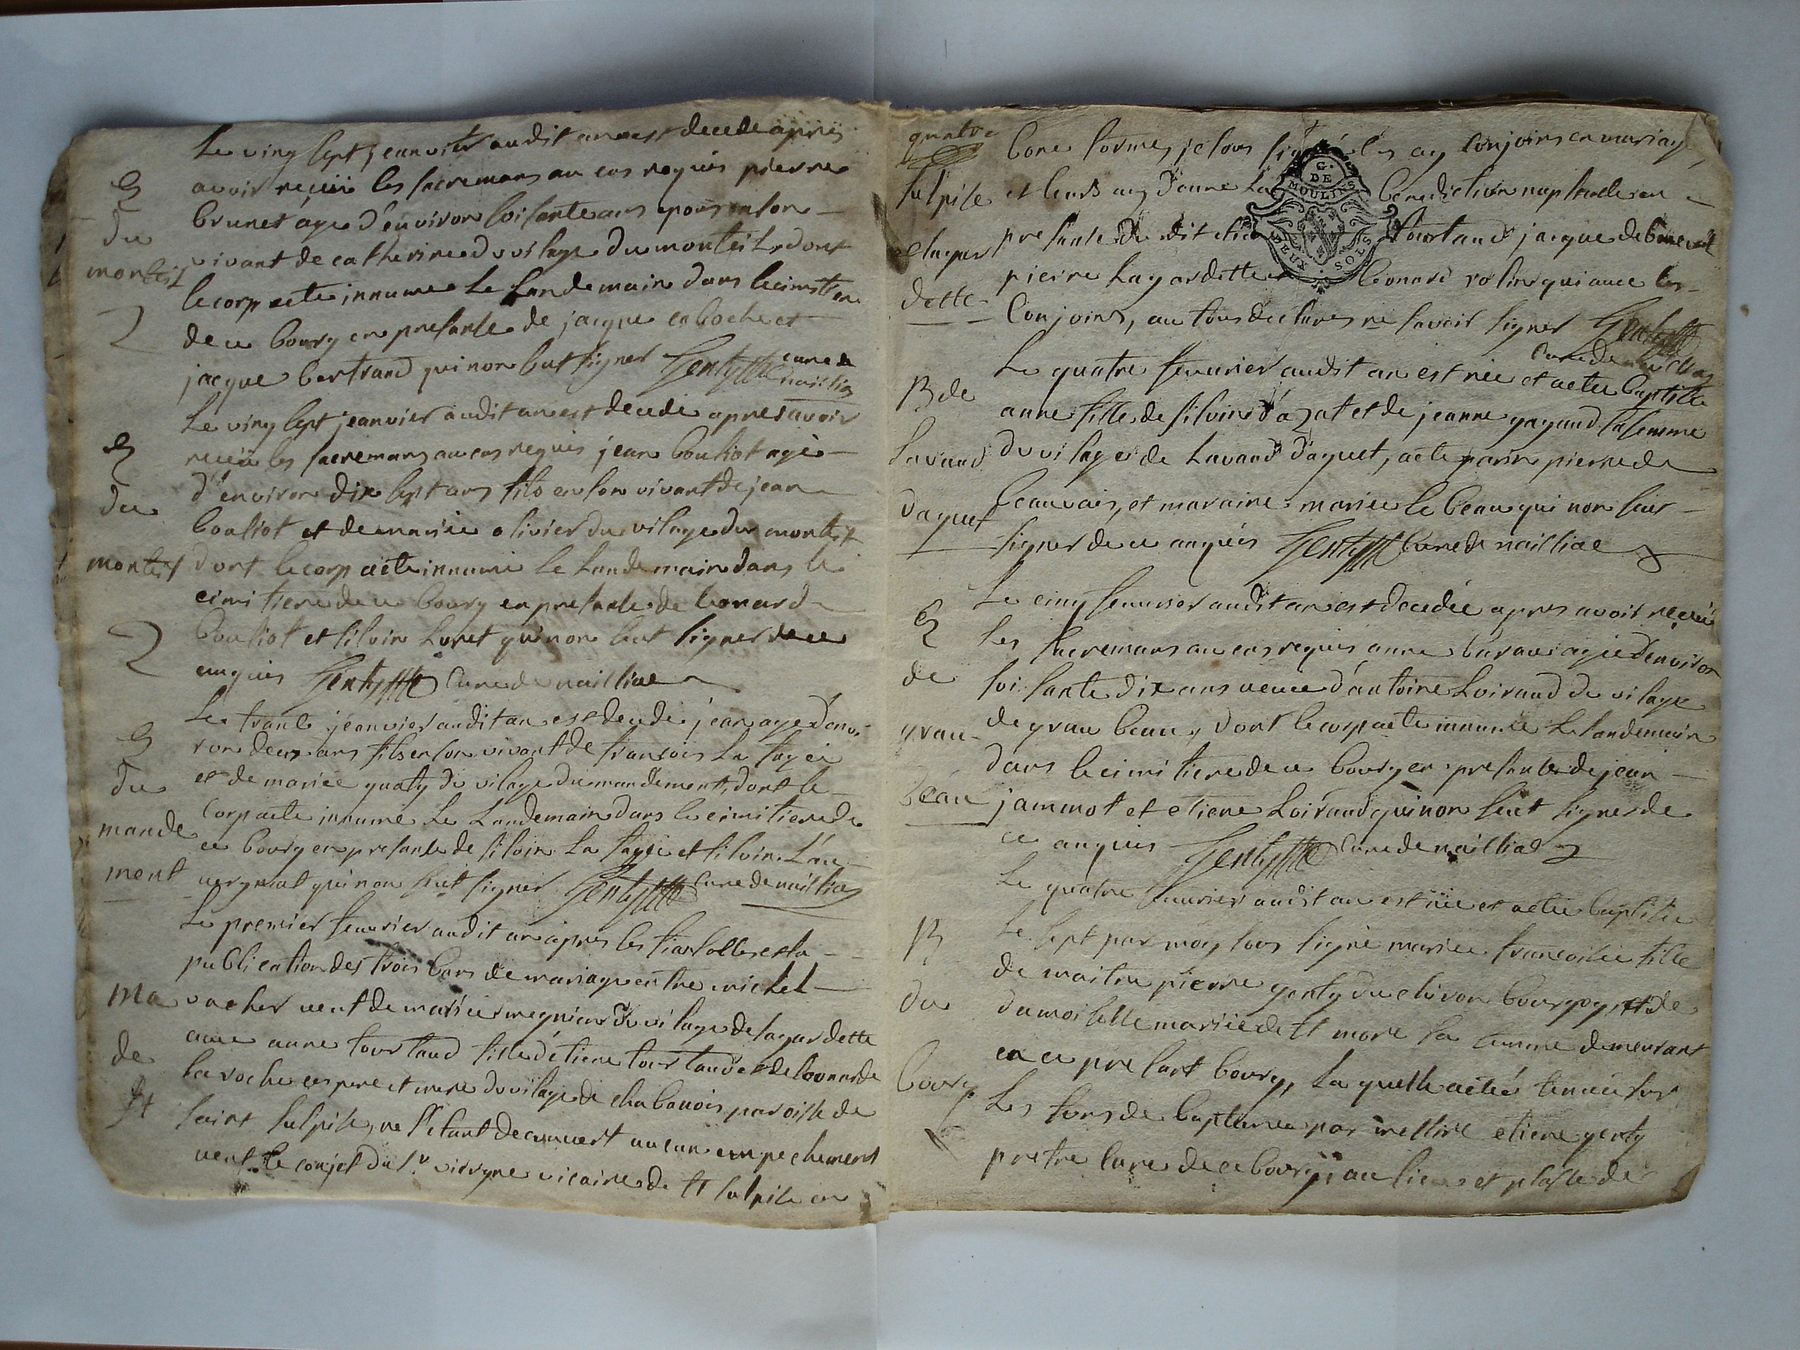 Le vingt sept jeanvier audit an est decede apres
E avoir recüü les sacremans au cas requis pierre
du brunet agé d'environ soisante ans epous en son
monteil vivant de catherine du vilage du monteil dont
le corp a ete innumé Le Landemain dans le cimitiere
de ce bourg en presante de jacque caboche et
jacque bertrand qui non sut signer Genty curé de nailliac
Le vingt sept jeanvier audit an est decede apres avoir
E recüü les sacremans au cas requis jean bouliot agé
d'environ dix sept ans fils en son vivant de jean
du bouliot et de mariee olivier du vilage du monteil
monteil dont le corp a ete innumé Le Landemain dans le
cimitiere de ce bourg en presante de leonard
bouliot et silvin Luret qui non sut signer de ce
enquis Genty Curé de nailliac
Le trante jeanvier audit an est decede jean agé d'envi
E ron deux ans fils en son vivant de francois La
du et de mariee du vilage du mandement, dont le
mande corp a ete innumé Le Landemain dans le cimitiere de
ce bourg en presante de silvin La et silvin L'au
ment vergnat qui non sut signer Genty Curé de nailliac
Le premier feuvrier audit an apres les fiansalles et la
publication des trois bans de mariage entre michel
ma vacher veuf de mariee du vilage de lagardette
de avec anne tourtaud fille d'etiene tourtaud et de leonarde
laroche ces pere et mere du vilage de chabanois paroisse de
st saint sulpise, ne s'etant decouvert aucun empechement
veut le du Sr vicaire de st sulpise en
quatre
bone forme, je sous signé les ay conjoins en mariage
sulpise et leurs ay donné La benediction nuptiale en
presante du dit etiene tourtaud jacque de
elagar pierre lagardette leonard rolin qui avec les
dette Conjoins, au tous declares ne savoir signer Genty
Curé de nailliac
Le quatre feuvrier audit an est née et a ete baptisee
B de anne fille de silvin d'azat et de jeanne sa femme
Lavaud du vilage de Lavaud d'aguet, a ete parin pierre de
daguet beauvais, et maraine mariee le beau qui non seu
signer de ce anquis Genty Curé de nailliac
Le cinq feuvrier audit an est decedée apres avoir recüü
E les sacremans au cas requis anne agée d'environ
de soisante dix ans veuve d'antoine Loiraud du vilage
grau de grau beau, dont le corp a ete innumé Le landemain
dans le cimitiere de ce bourg en presante de jean
beau jammot et etiene Loiraud qui non seut signer de
ce anquis Genty Curé de nailliac
Le quatre feuvrier audit an est née et a ete baptisee
B Le sept par moy sous signé mariee francoisse fille
de maitre pierre genty du bourgoy, et de
du damoiselle mariee de st more sa femme demeurant
en ce presant bourg, La quelle a eté tenüe sur
bourg Les fons de bapteme par messire etiene genty
pretre curé de ce bourg, au lieu et plasse de
G.
DE
MOULINS
DEUX SOLS